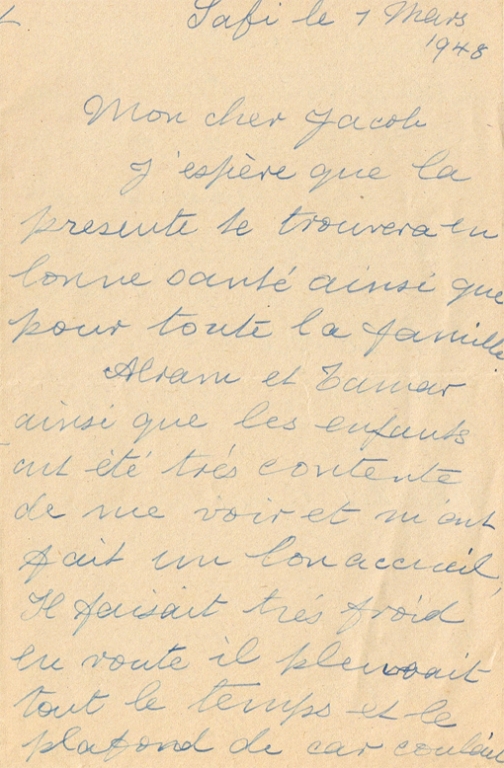 Safi le 1 Mars
1948
Mon cher Jacob
J'espère que la
presente te trouvera en
bonne santé ainsi que
pour toute la famille
Abram et Tamar
ainsi que les enfants
ont été trés contente
de me voir et m'ont
fait un bon accueil,
Il faisait trés froid
en route il pleuvait
tout le temps et le
plafond de car coulait